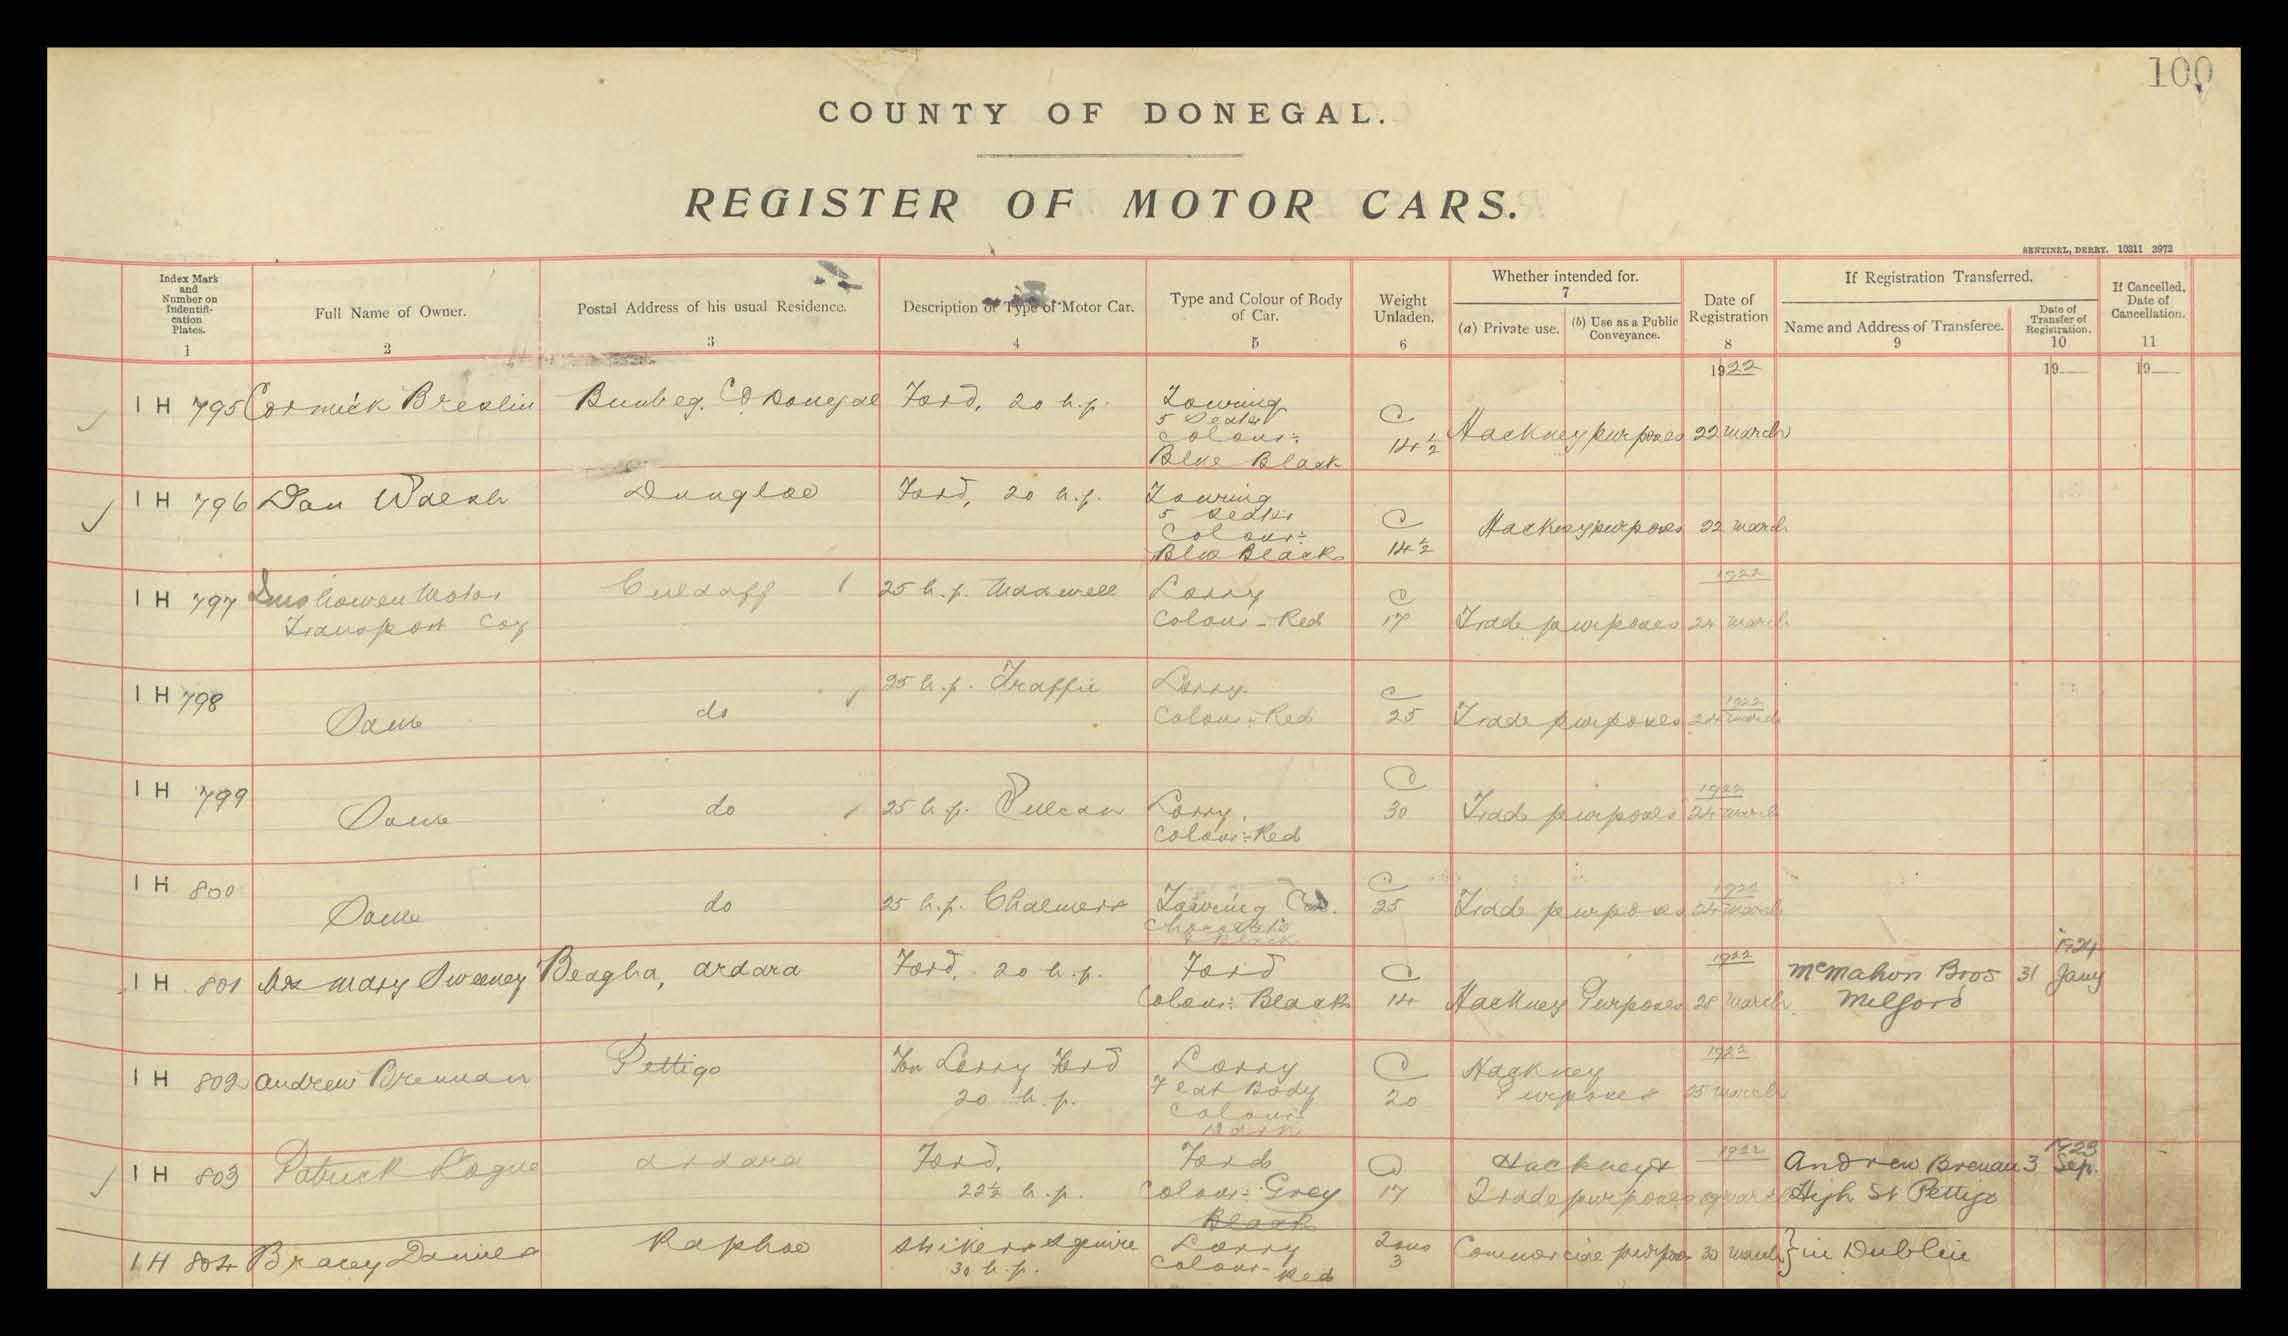 100
COUNTY OF DONEGAL.
REGISTER OF MOTOR CARS.
SENTINEL, DERRY. 10311 3973
Index Mark and Number on Indentifi- cation Plates. 1
Full Name of Owner. 2
Postal Address of his usual Residence. 3
Description or Type of Motor Car. 4
Type and Colour of Body of Car. 5
Weight Unladen. 6
Whether intended for. 7
(a) Private use.
(b) Use as a Public Conveyance.
Date of Registration 8
If Registration Transferred.
Name and Address of Transferee. 9
Date of Transfer of Registration. 10
If Cancelled, Date of Cancellation. 11
1922 19 19
IH 795 Cormick Breslin Bunbeg. Co Donegal Ford, 20 h.p. Touring
5 Seater
Colour:
Blue Black C
14½ Hackney purposes 22 March
IH 796 Dan Walsh Dungloe Ford, 20 h.p. Touring
5 Seater
Colour:
Blue Black C
14½ Hackney purposes 22 March
IH 797 Inishowen Motor
Transport Coy Culdaff 25 h.p. Maxwell Lorry
Colour - Red C
17 Trade purposes 1922
24 March
IH 798 Same do 25 h.p. Traffic Lorry
Colour: Red C
25 Trade purposes 1922
24 March
IH 799 Same do 25 h.p. Vulcan Lorry,
Colour: Red C
30 Trade purposes 1922
24 March
IH 800 Same do 25 h.p. Chalmers Touring Car.
Chocolate
& Black C
25 Trade purposes 1922
24 March
IH 801 Mrs Mary Sweeney Beagha, Ardara Ford, 20 h.p. Ford
Colour: Black C
14 Hackney Purposes 1922
28 March McMahon Bros
Milford 1924
31 Jany
IH 802 Andrew Brennan Pettigo Ton Lorry Ford
20 h.p. Lorry
Flat Body
Colour:
Dark C
20 Hackney
Purposes 1922
25 March
IH 803 Patrick Logue Ardara Ford,
22½ h.p. Ford
Colour: Grey
Black C
17 Hackney &
Trade purposes 1922
March Andrew Brenan
High St Pettigo 1923
3 Sep.
IH 804 Bracey Daniels Raphoe Squire
30 h.p. Lorry
Colour - Red 2 tons
3 Commercial purpos 30 March } in Dublin